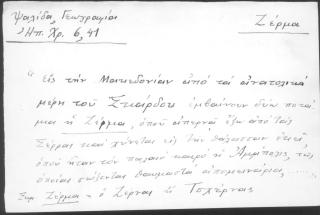 Ψαλίδα, Γεωγραφία
Ἠπ. Χρ. 6, 41
Ζέρμα
"Εἰς τὴν Μακεδονίαν ἀπὸ τὰ ἀνατολικὰ
μέρη τοῦ Σκάρδου ἐμβαίνουν δύο ποτά
μια ἡ Ζέρμα, ὁποῦ ἀπερνᾷ ἔξω ἀπὸ τὰς
Σέρρας καὶ χύνεται εἰς τὴν θάλασσαν ἐκεῖ
ὁποῦ ἦταν τὸν παλαιὸ καιρὸ ἡ Ἀμφίπολις, τῆς
ὁποίας σώζονται θαυμαστὰ ἀπομεινάρια.....
Σημ. Ζέρμα = ὁ Ζέρνας ἢ Τσχέρνας